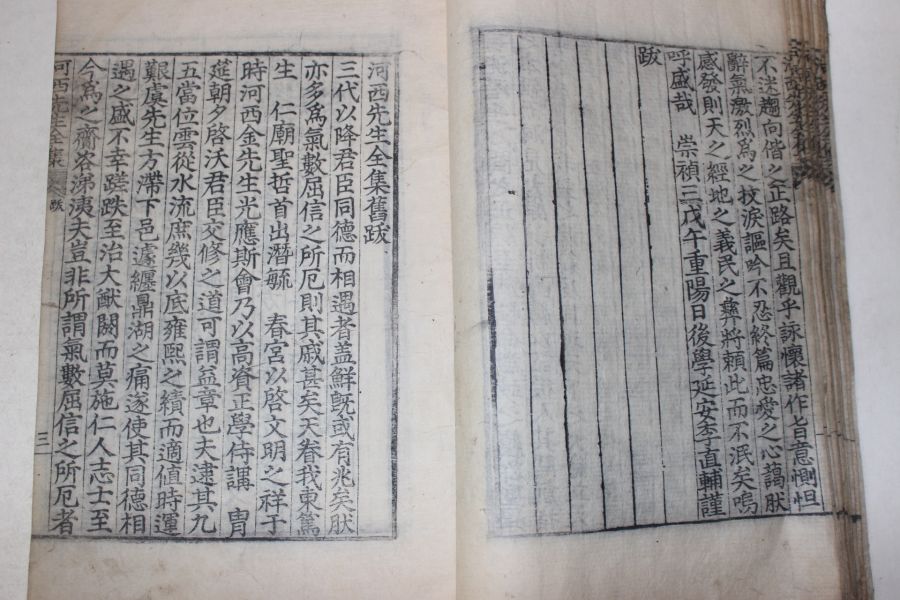 不迷趨向偕之正路矣且觀乎詠懷諸作旨意惻怛
辭氣激烈爲之抆淚謳吟不忍終篇忠愛之心藹肰
感發則天之經地之義民之彝將賴此而不泯矣嗚
呼盛哉　崇禎三戊午重陽日後學延安李直輔謹
跋
河西先生全集舊跋
三代以降君臣同德而相遇者盖鮮旣或有兆矣肰
亦多爲氣數屈信之所厄則其戚甚矣天眷我東篤
生　仁廟聖哲首出潛毓　春宮以啓文明之祥于
時河西金先生光應斯會乃以高資正學侍講　胄
筵朝夕啓沃君臣交修之道可謂益章也夫逮其九
五當位雲從水流庶幾以底雍熙之績而適値時運
艱虞先生方滯下邑遽纏鼎湖之痛遂使其同德相
遇之盛不幸蹉跌至治大猷闕而莫施仁人志士至
今爲之齎咨涕洟夫豈非所謂氣數屈信之所厄者
河西先生全集
跋
三